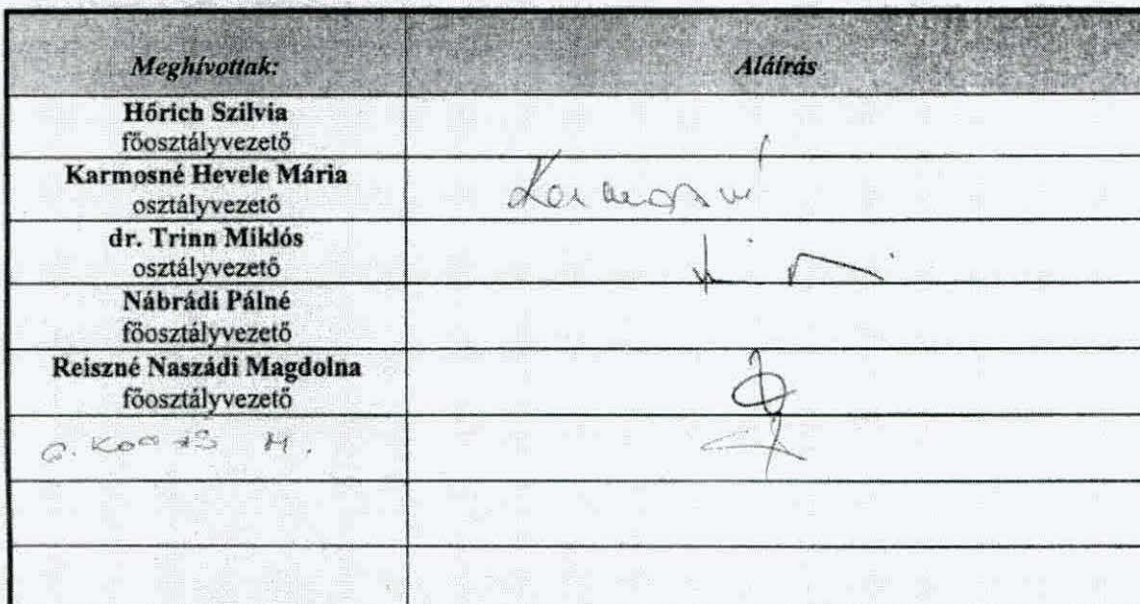 Meghívottak: Aláírás
Hőrich Szilvia
főosztályvezető
Karmosné Hevele Mária
osztályvezető
Karmosné
dr. Trinn Miklós
osztályvezető
Nábrádi Pálné
főosztályvezető
Reiszné Naszádi Magdolna
főosztályvezető
G. M.